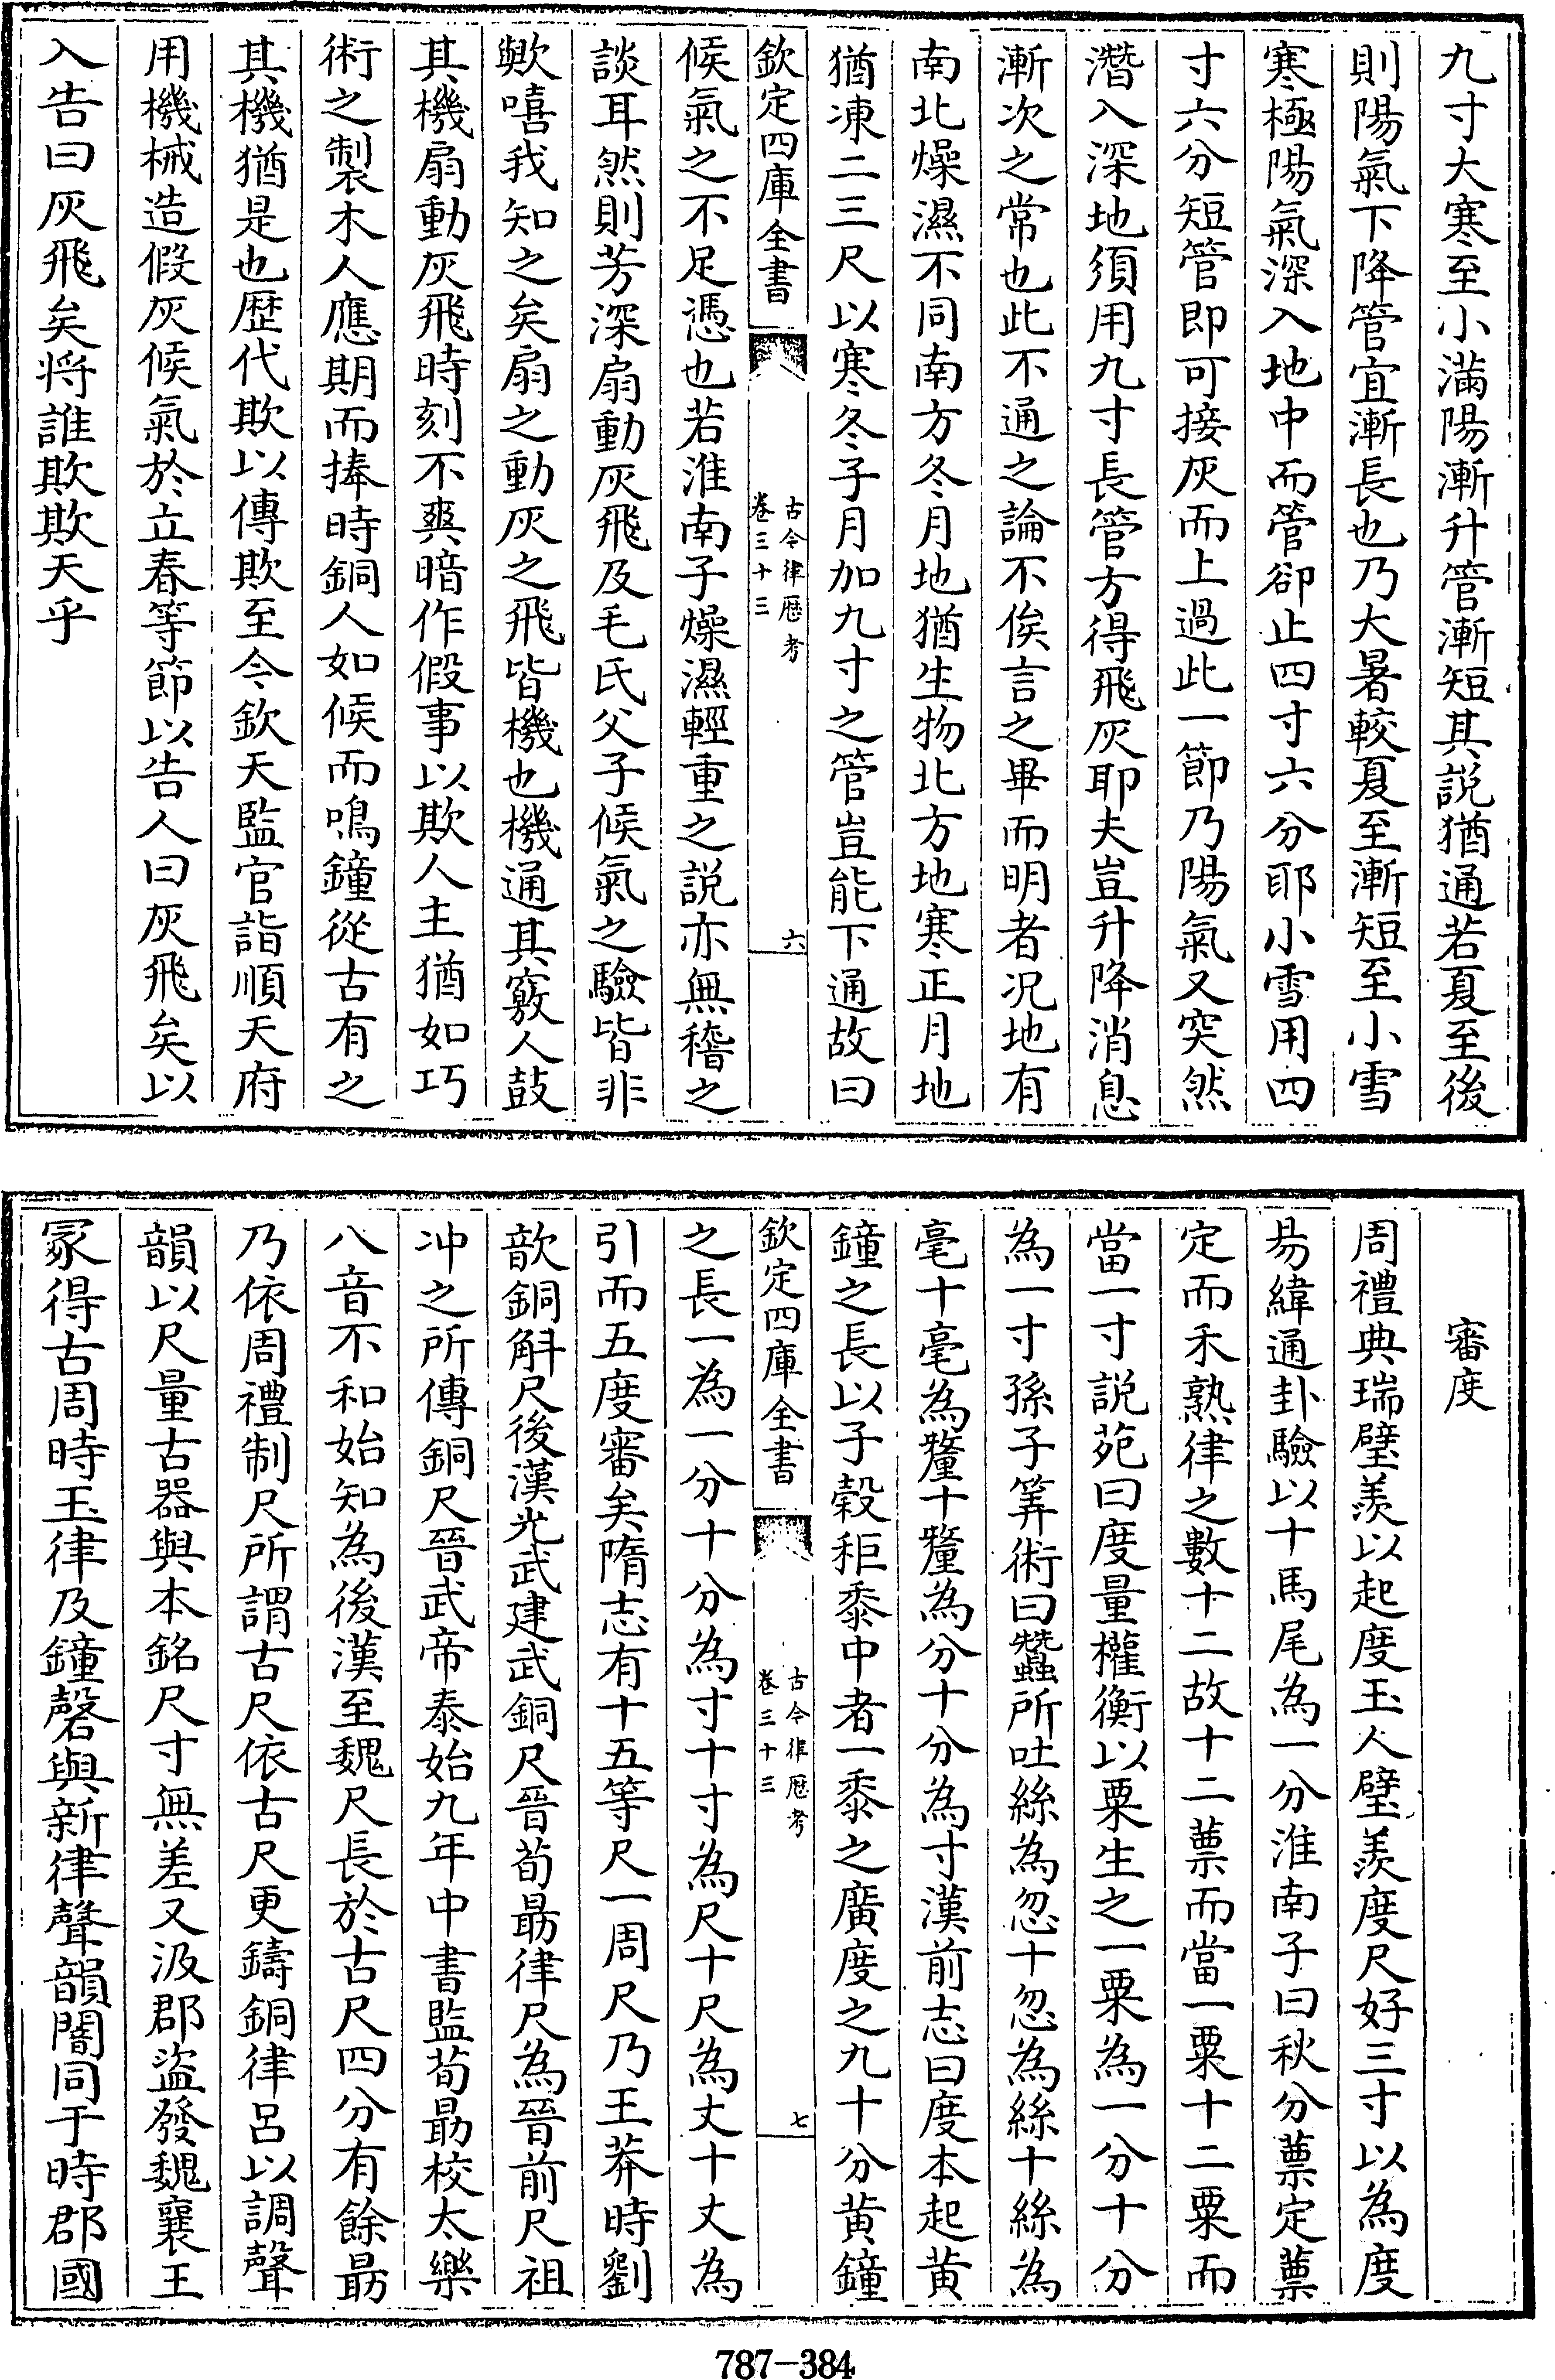 九寸大寒至小滿陽漸升管漸短其說猶通若夏至後
則陽氣下降管宜漸長也乃大暑較夏至漸短至小雪
寒極陽氣深入地中而管卻止四寸六分耶小雪用四
寸六分短管即可接灰而上過此一節乃陽氣又突然
潛入深地須用九寸長管方得飛灰耶夫豈升降消息
漸次之常也此不通之論不俟言之畢而明者况地有
南北燥濕不同南方冬月地猶生物北方地寒正月地
猶凍二三尺以寒冬子月加九寸之管豈能下通故曰
欽定四庫全書
古今律厯考
卷三十三
六
候氣之不足憑也若淮南子燥濕輕重之說亦無稽之
談耳然則芳深扇動灰飛及毛氏父子候氣之驗皆非
歟嘻我知之矣扇之動灰之飛皆機也機通其竅人鼓
其機扇動灰飛時刻不爽暗作假事以欺人主猶如巧
術之製木人應期而捧時銅人如候而鳴鐘從古有之
其機猶是也歴代欺以傳欺至今欽天監官詣順天府
用機械造假灰候氣於立春等節以告人曰灰飛矣以
入告曰灰飛矣將誰欺欺天乎
審度
周禮典瑞璧羡以起度玉人璧羡度尺好三寸以為度
易緯通卦驗以十馬尾為一分淮南子曰秋分蔈定蔈
定而禾熟律之數十二故十二蔈而當一粟十二粟而
當一寸說苑曰度量權衡以粟生之一粟為一分十分
為一寸孫子筭術曰蠶所吐絲為忽十忽為絲十絲為
毫十毫為釐十釐為分十分為寸漢前志曰度本起黄
鐘之長以子穀秬黍中者一黍之廣度之九十分黄鐘
欽定四庫全書
古今律厯考
卷三十三
七
之長一為一分十分為寸十寸為尺十尺為丈十丈為
引而五度審矣隋志有十五等尺一周尺乃王莽時劉
歆銅斛尺後漢光武建武銅尺晉荀勗律尺為晉前尺祖
冲之所傳銅尺晉武帝泰始九年中書監荀勗校太樂
八音不和始知為後漢至魏尺長於古尺四分有餘勗
乃依周禮制尺所謂古尺依古尺更鑄銅律呂以調聲
韻以尺量古器與本銘尺寸無差又汲郡盜發魏襄王
冢得古周時玉律及鐘磬與新律聲韻闇同于時郡國
787-384